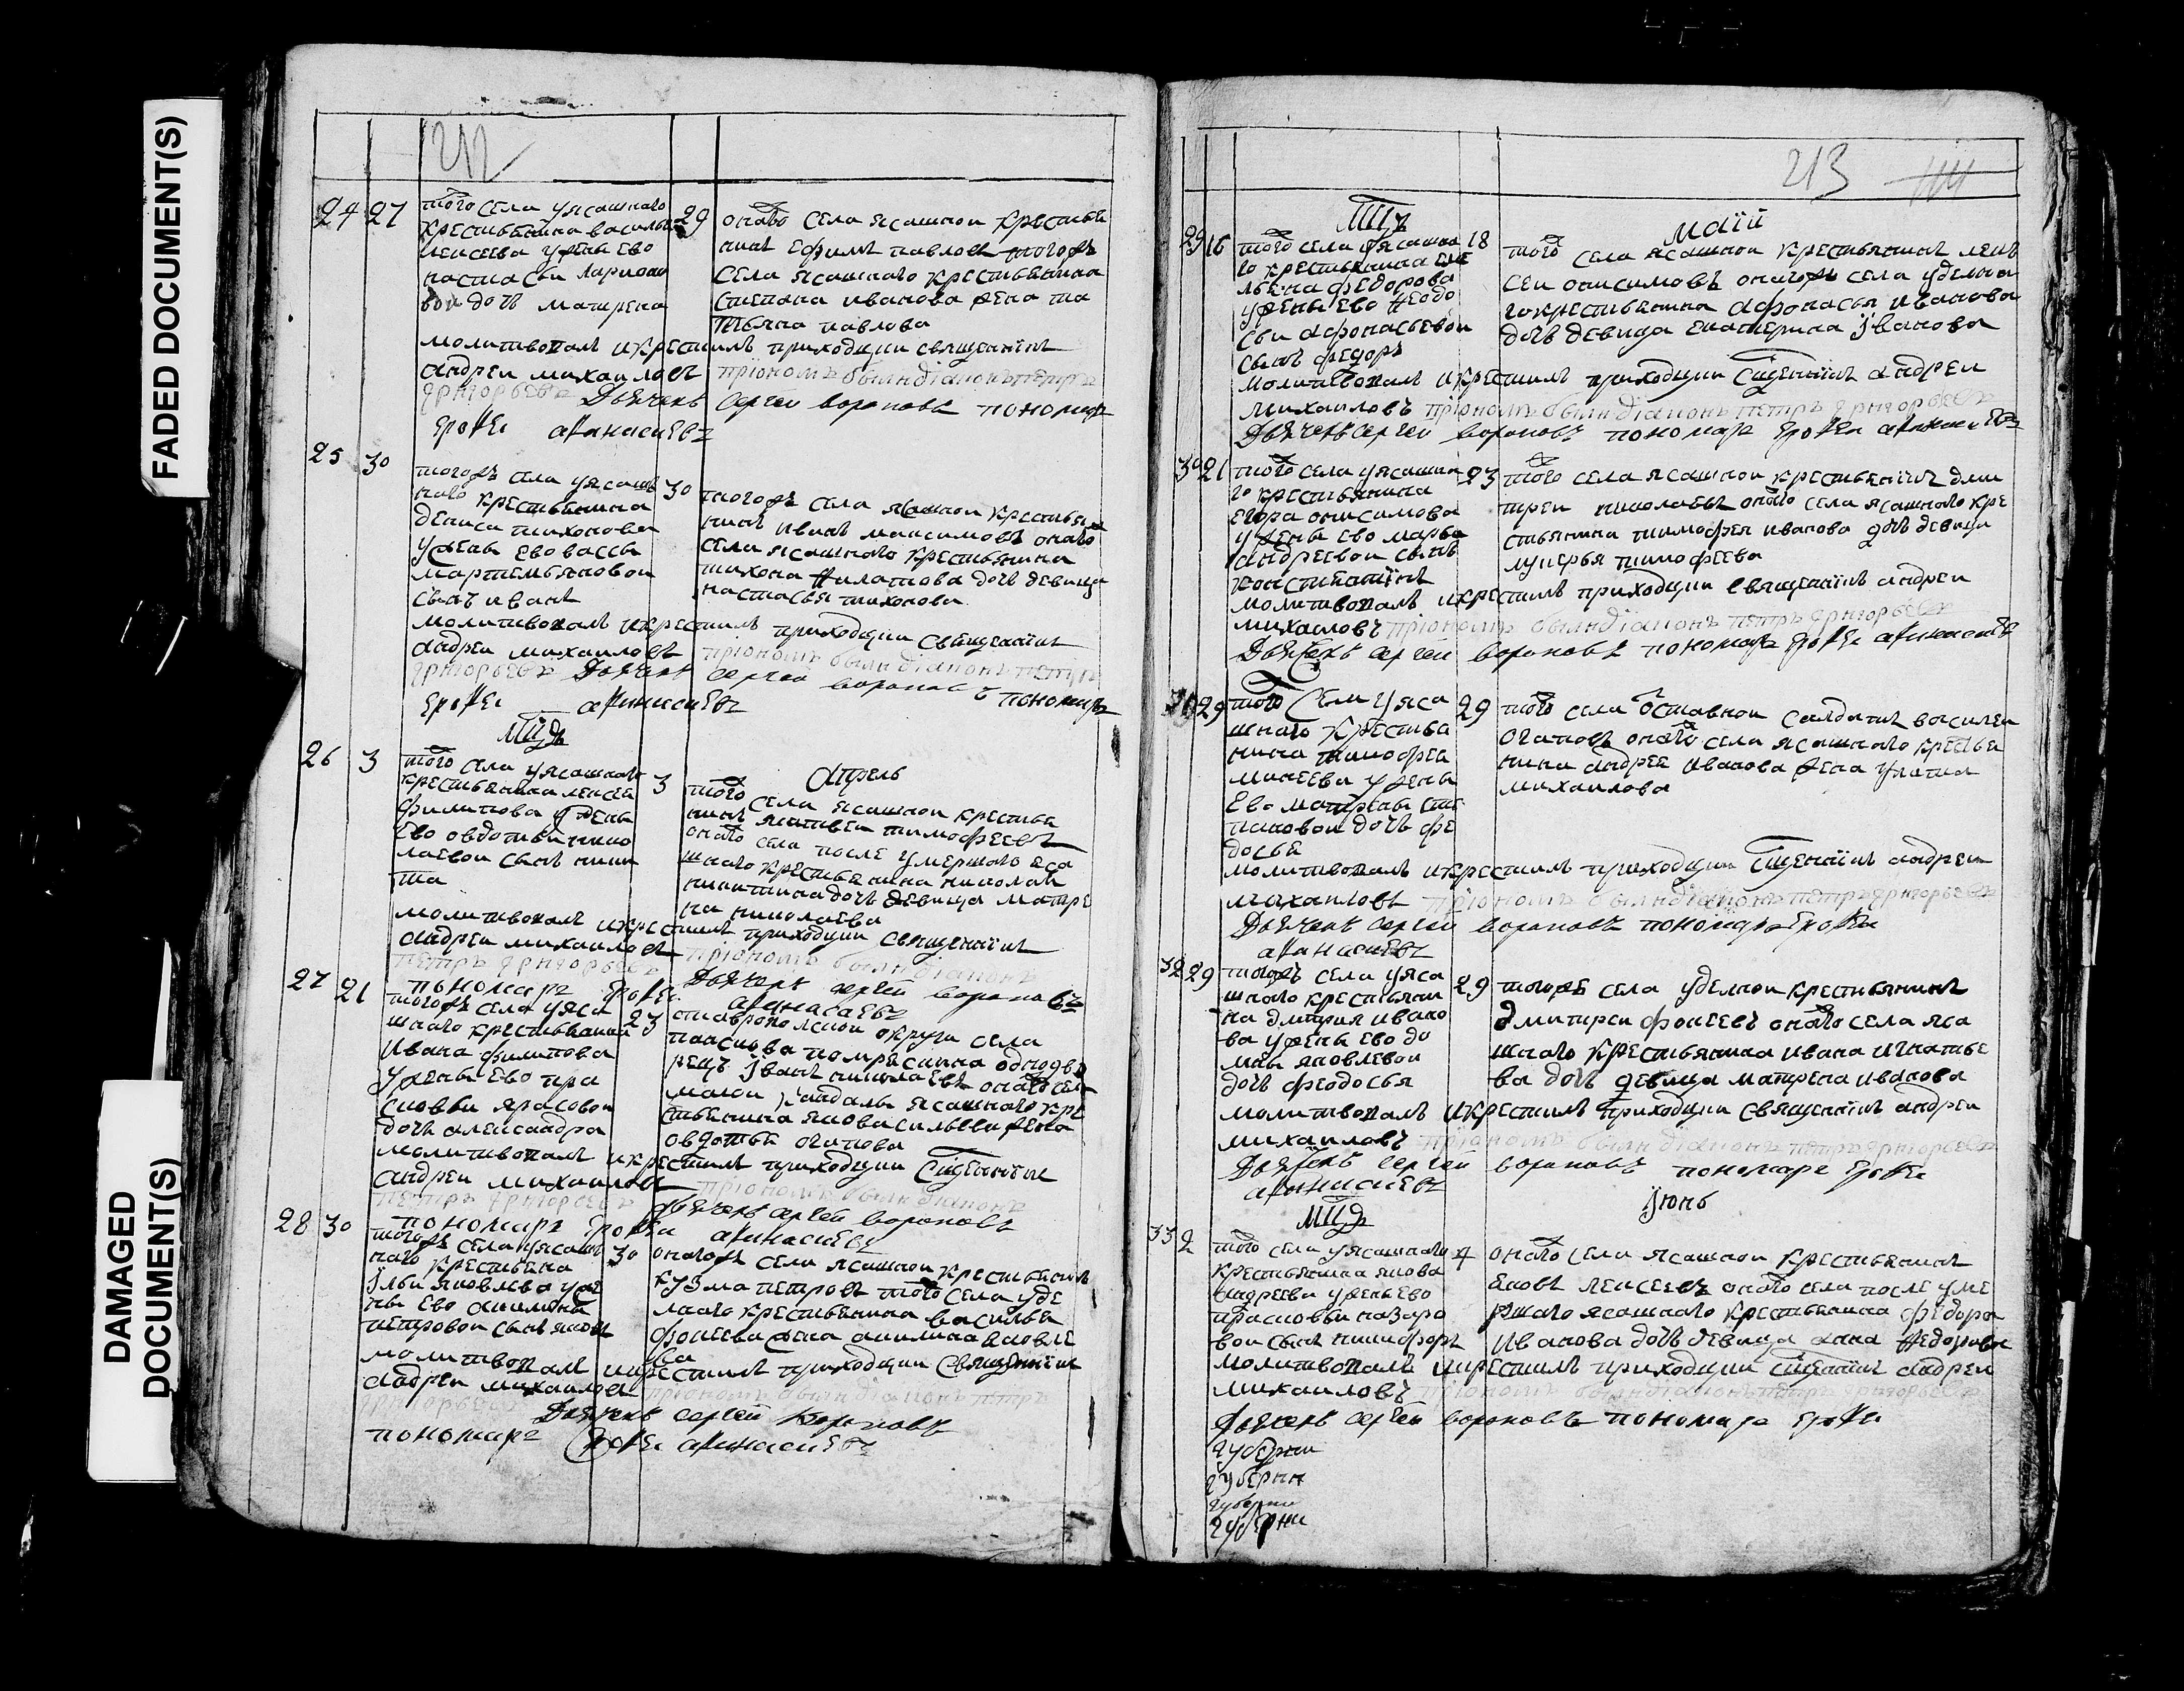 FADED DOCUMENT(S)
DAMAGED
DOCUMENT(S)
212
24 27
того села у ясашнаго
крестьянина василья
лексеева у жены ево
настасьи ларионо
вои дочь матрена
29
оного села ясашнои крестья
нинъ ефимъ павловъ тогожъ
села ясашнаго крестьянина
степана иванова жена та
тьяна павлова
молитвовалъ и крестилъ приходции священникъ
андреи михаиловъ приономъ былъ дiаконъ петръ
григорьевъ Дьячекъ сергеи вороновъ пономарь
Ерофеи афанасиевъ
25 30
тогожъ села у ясаш
наго крестьянина
дениса тихонова
у жены ево вассы
мартемьяновои
сынъ иванъ
30
тогожъ села ясашнои крестья
нинъ иванъ максимовъ оного
села ясашнаго крестьянина
тихона филатова дочь девица
настасья тихонова
молитвовалъ и крестилъ приходции священникъ
андреи михаиловъ приономъ былъ дiаконъ петръ
григорьевъ Дьячекъ сергеи вороновъ пономарь
Ерофеи афанасиевъ
26 3
того села у ясашнаго
крестьянина лексея
филипова у жены
ево овдотьи нико
лаевои сынъ ники
та
Апрель
3
того села ясашнои крестья
нинъ матвеи тимофеевъ
оного села после умершаго яса
шнаго крестьянина николая
никитина дочь девица матре
на николаева
молитвовалъ и крестилъ приходции священникъ
андреи михаиловъ приономъ былъ дiаконъ
петръ григорьевъ Дьячекъ сергеи вороновъ
пономарь Ерофеи афанасиевъ
27 21
тогожъ села у яса
шнаго крестьянина
ивана филипова
у жены ево пра
сковьи
дочь александра
23
ставропольскои округи села
однодво
рецъ iванъ николаевъ оного села
ясашнаго кре
стьянина якова жена
овдотья
молитвовалъ и крестилъ приходции Сщенникъ
андреи михаиловъ приономъ былъ дiаконъ
петръ григорьевъ Дьячекъ сергеи вороновъ
пономарь Ерофеи афанасиевъ
28 30
тогожъ села у ясаш
наго крестьянина
iльи яковлева у же
ны ево акилины
петровои сынъ яковъ
30
оногожъ села ясашнои крестьянинъ
кузма петровъ того села уде
лнаго крестьянина василья
фокеева жена акилина яковле
ва
молитвовалъ и крестилъ приходции Священникъ
андреи михаиловъ приономъ былъ дiаконъ петръ
григорьевъ Дьячекъ сергеи вороновъ
пономарь Ерофеи афанасиевъ
213
Маiй
29 16
того села у ясашна
го крестьянина еме
льяна федорова
у жены ево феодо
сьи афонасьевои
сынъ федоръ
18
того села ясашнои крестьянинъ лек
сеи онисимовъ оногожъ села уделна
го крестьянина афонасья иванова
дочь девица екатерина iванова
молитвовалъ и крестилъ приходции Сщенникъ андреи
михаиловъ приономъ былъ дiаконъ петръ григорьевъ
Дьячекъ сергеи вороновъ пономарь Ерофеи афанасиевъ
30 21
того села у ясашна
го крестьянина
егора онисимова
у жены ево марьи
андреевои сынъ
константинъ
23
того села ясашнои крестьянинъ дми
треи николаевъ оного села ясашнаго кре
стьянина тимофея иванова дочь девица
лукерья тимофеева
молитвовалъ и крестилъ приходции священникъ андреи
михаиловъ приономъ былъ дiаконъ петръ григорьевъ
Дьячекъ сергеи вороновъ пономарь Ерофеи афанасиевъ
31 29
того села у яса
шнаго крестья
нина тимофея
минеева у жены
ево матрены сте
пановои дочь фе
досья
29
того села отставнои салдатъ василеи
оного села ясашнаго крестья
нина андрея иванова жена
михаилова
молитвовалъ и крестилъ приходции Сщенникъ андреи
михаиловъ приономъ былъ дiаконъ петръ григорьевъ
Дьячекъ сергеи вороновъ пономарь Ерофеи
афанасиевъ
32 29
тогожъ села у яса
шнаго крестьяни
на дмитрия ивано
ва у жены ево до
мны яковлевои
дочь феодосья
29
тогожъ села уделнои крестьянинъ
дмитреи фокеевъ оного села яса
шнаго крестьянина ивана игнатье
ва дочь девица матрена иванова
молитвовалъ и крестилъ приходции священникъ андреи
михаиловъ приономъ былъ дiаконъ петръ григорьевъ
Дьячекъ сергеи вороновъ пономарь Ерофеи
афанасиевъ
Iюнь
33 2
того села у ясашнаго
крестьянина якова
андреева у жены ево
прасковьи назаро
вои сынъ никифоръ
4
оного села ясашнои крестьянинъ
яковъ лексеевъ оного села после уме
ршаго ясашнаго крестьянина федора
иванова дочь девица анна федорова
молитвовалъ и крестилъ приходции Сщенникъ андреи
михаиловъ приономъ былъ дiаконъ петръ григорьевъ
Дьячекъ сергеи вороновъ пономарь Ерофеи
губерни
губерни
губерни
губерни